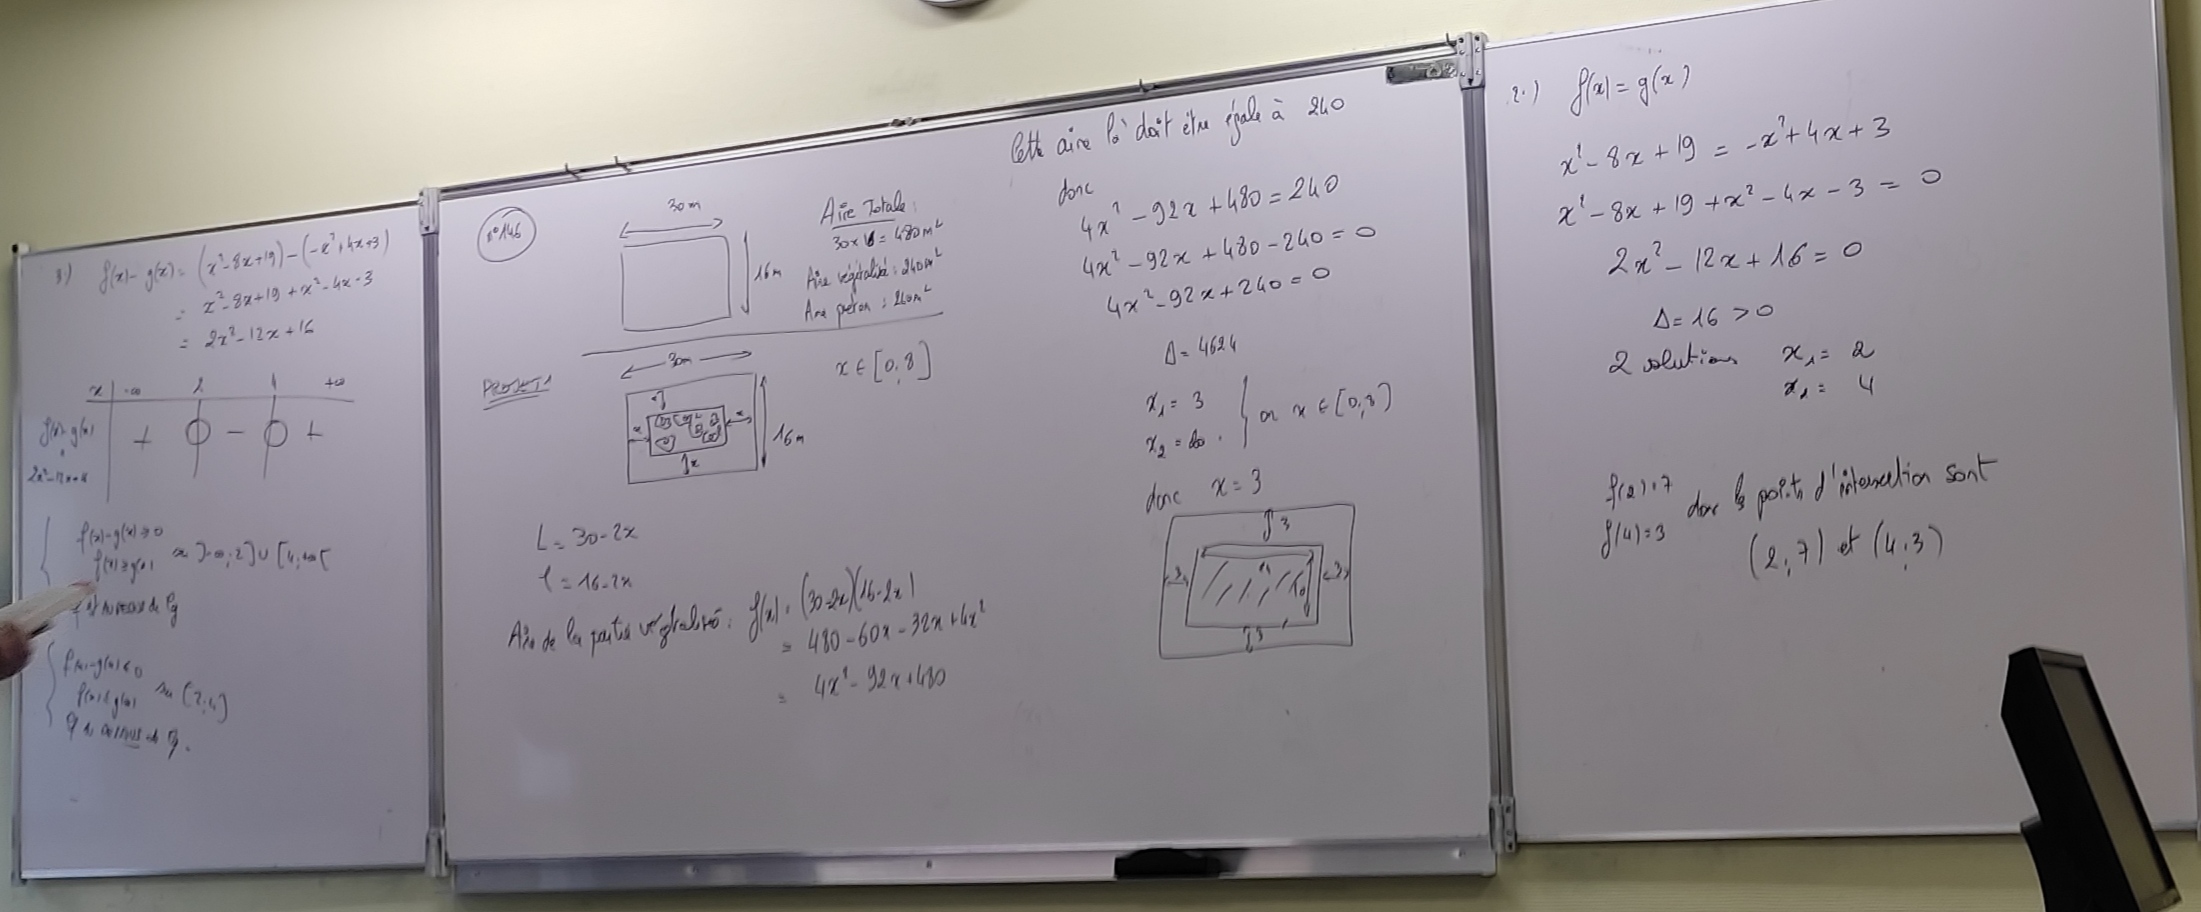 3) f(x) - g(x) = (x² - 8x + 19) - (-x² + 4x + 3)
= x² - 8x + 19 + x² - 4x - 3
= 2x² - 12x + 16
x -∞ 2 4 +∞
f(x) - g(x) + 0 - 0 +
f(x) - g(x) ≥ 0
f(x) ≥ g(x) sur ]-∞; 2] ∪ [4; +∞[
f(x) - g(x) < 0
f(x) < g(x) sur [2; 4]
n°146
30m
16m
Aire Totale:
30 × 16 = 480 m²
Aire végétalisé: 240 m²
Aire piéton: 240 m²
PROJET 1
30m
x
x
x
16m
x ∈ [0, 8]
L = 30 - 2x
l = 16 - 2x
Aire de la partie végétalisé: f(x) = (30 - 2x)(16 - 2x)
= 480 - 60x - 32x + 4x²
= 4x² - 92x + 480
Cette aire là doit être égale à 240
donc
4x² - 92x + 480 = 240
4x² - 92x + 480 - 240 = 0
4x² - 92x + 240 = 0
Δ = 4624
x₁ = 3
x₂ = 20
or x ∈ [0, 8]
donc x = 3
3
3
3
3
2.) f(x) = g(x)
x² - 8x + 19 = -x² + 4x + 3
x² - 8x + 19 + x² - 4x - 3 = 0
2x² - 12x + 16 = 0
Δ = 16 > 0
2 solutions x₁ = 2
x₂ = 4
f(2) = 7
f(4) = 3
donc les points d'intersection sont
(2; 7) et (4; 3)